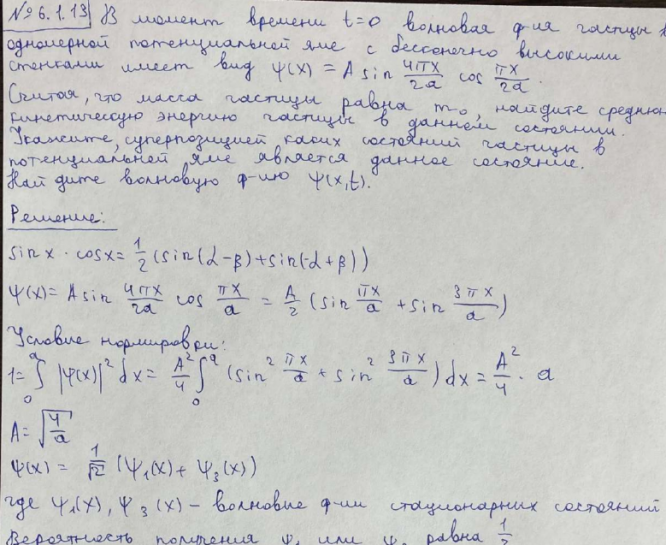 №6.1.13 В момент времени t=0 волновая ф-ия частицы в
одномерной потенциальной яме с бесконечно высокими
стенками имеет вид Ψ(x) = A sin 4πx/2a cos πx/2a.
Считая, что масса частицы равна m₀, найдите среднюю
кинетическую энергию частицы в данном состоянии.
Укажите, суперпозицией каких состояний частицы в
потенциальной яме является данное состояние.
Найдите волновую ф-ию Ψ(x,t).
Решение:
sin x · cos x = 1/2 (sin(α-β)+sin(α+β))
Ψ(x) = A sin 4πx/2a cos πx/a = A/2 (sin πx/a + sin 3πx/a)
Условие нормировки:
1 = ∫₀ᵃ |Ψ(x)|² dx = A²/4 ∫₀ᵃ (sin² πx/a + sin² 3πx/a) dx = A²/4 · a
A = √4/a
Ψ(x) = 1/√2 (Ψ₁(x) + Ψ₃(x))
где Ψ₁(x), Ψ₃(x) – волновые ф-ии стационарных состояний
Вероятность получения или равна